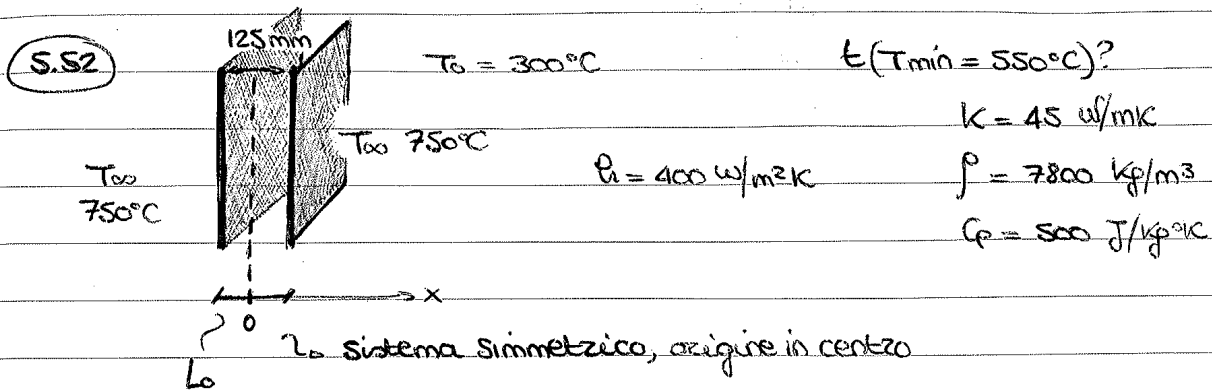 5.52
125mm
T₀ = 300°C
t(Tmin = 550°C)?
K = 45 W/mK
T∞ 750°C
T∞
750°C
h = 400 W/m²K
ρ = 7800 Kg/m³
Cp = 500 J/Kg°K
0
x
L₀
sistema simmetrico, origine in centro